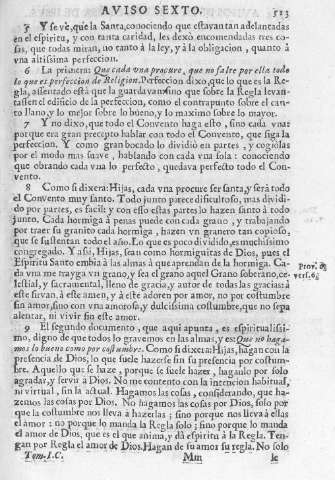 AVISO SEXTO. 513
5 Y se vè, que la Santa, conociendo que estavan tan adelantadas
en el espiritu, y con tanta caridad, les dexò encomendadas tres co-
sas, que todas miran, no tanto à la ley, y à la obligacion, quanto à
vna altissima perfeccion.
6 La primera: Que cada vna procure, que no falte por ella todo
lo que es perfeccion de Religion. Perfeccion dixo, que lo que es la Re-
gla, assentado està que la guardavan; sino que sobre la Regla levan-
tassen el edificio de la perfeccion, como el contrapunto sobre el can-
to llano, y lo mejor sobre lo bueno, y lo maximo sobre lo mayor.
7 Y no dixo, que todo el Convento haga esto, sino cada vna:
porque era gran precepto hablar con todo el Convento, que siga la
perfeccion. Y como gran bocado lo dividiò en partes, y cogiòlas
por el modo mas suave, hablando con cada vna sola: conociendo
que obrando cada vna lo perfecto, quedava perfecto todo el Con-
vento.
8 Como si dixera: Hijas, cada vna procure ser santa, y serà todo
el Convento muy santo. Todo junto parece dificultoso, mas dividi-
do por partes, es facil; y con esso estas partes lo hazen santo à todo
junto. Cada hormiga à penas puede con cada grano, y trabajando
por traer su granito cada hormiga, hazen vn granero tan copioso,
que se sustentan todo el año. Lo que es poco dividido, es muchissimo
congregado. Y assi, Hijas, sean como hormiguitas de Dios, pues el
Espiritu Santo embia à las almas à que aprendan de la hormiga. Ca-
da vna me trayga vn grano, y sea el grano aquel Grano soberano, ce-
lestial, y sacramental, lleno de gracia, y autor de todas las gracias: à
este sirvan, à este amen, y à este adoren por amor, no por costumbre
sin amor, sino con vna amorosa, y dulcissima costumbre, que no sepa
alentar, ni vivir sin este amor.
Prov. 6.
vers. 6.
9 El segundo documento, que aqui apunta, es espiritualissi-
mo, digno de que todos lo gravemos en las almas, y es: Que no haga-
mos lo bueno como por costumbre. Como si dixera: Hijas, hagan con la
presencia de Dios, lo que suele hazerse sin su presencia por costum-
bre. Aquello que se haze, porque se suele hazer, haganlo por solo
agradar, y servir à Dios. No me contento con la intencion habitual,
ni virtual, sin la actual. Hagamos las cosas, considerando, que ha-
zemos las cosas por Dios. No hagamos las cosas por Dios, solo por
que la costumbre nos lleva à hazerlas; sino porque nos lleva à ellas
el amor: no porque lo manda la Regla solo; sino porque lo manda
el amor de Dios, que es el que anima, y dà espiritu à la Regla. Ten-
gan por Regla el amor de Dios. Hagan de su amor su regla. No solo
Tom. I. C. Mm le